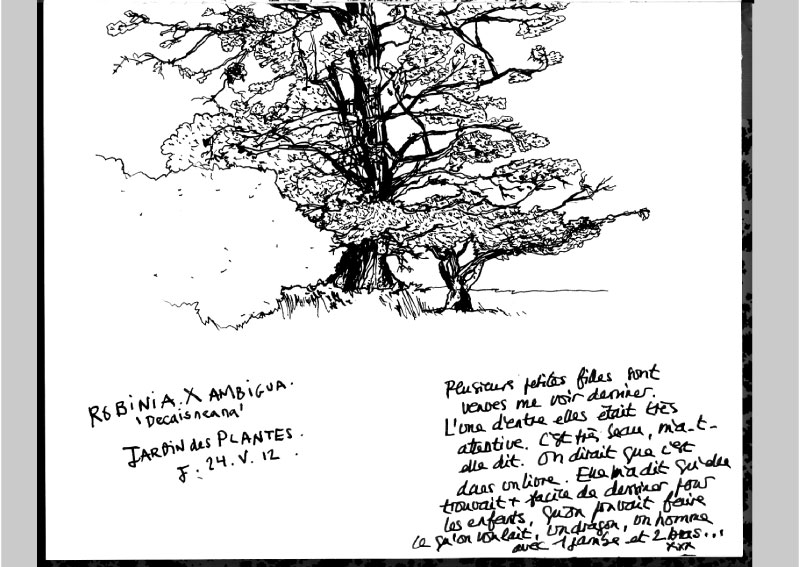 ROBINIA. X AMBIGUA.
'Decaisneana'
JARDIN des PLANTES.
J : 24. V. 12 .
Plusieurs petites filles sont
venues me voir dessiner.
L'une d'entre elles était très
attentive. C'est très beau, m'a-t-
elle dit. On dirait que c'est
dans un livre. Elle m'a dit qu'elle
trouvait + facile de dessiner pour
les enfants, qu'on pouvait faire
ce qu'on voulait, un dragon, un homme
avec 1 jambe et 2 bras...
xxx